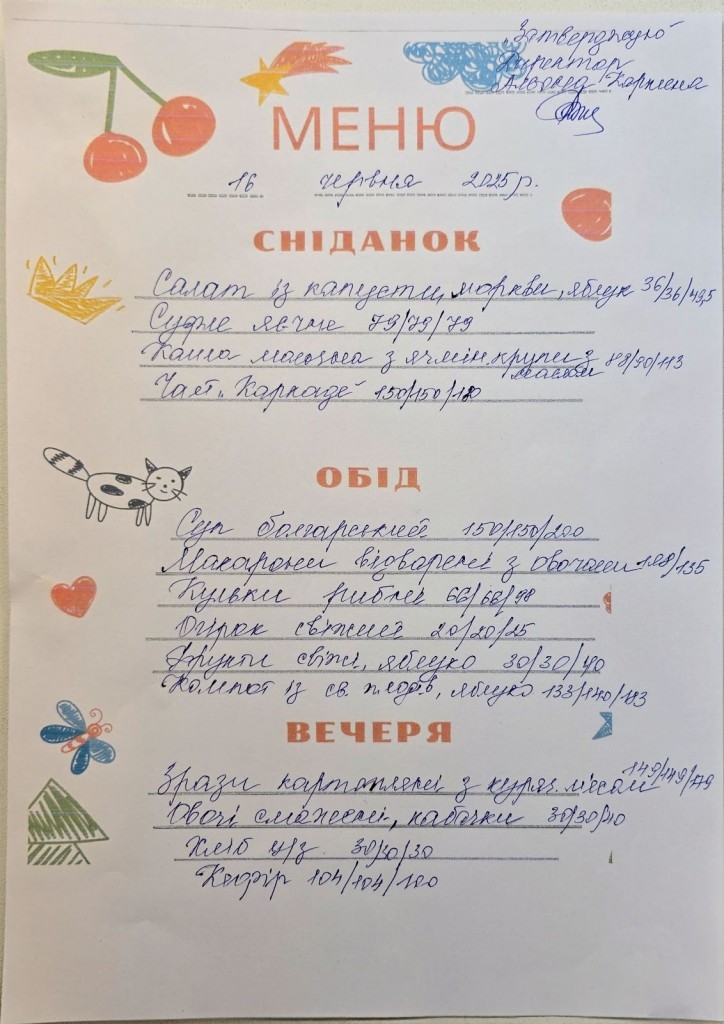 "Затверджую"
Директор
МЕНЮ
16 червня 2025 р.
СНІДАНОК
Салат із капусти, моркви, яблук 36/36/49,5
Суфле яєчне 79/79/79
Каша молочна з ячмін. крупи з
маслом 88/90/113
Чай "Каркаде" 150/150/180
ОБІД
Суп болгарський 150/150/200
Макарони відварені з овочами /135
Кульки рибні 66/66/98
Огірок свіжий 20/20/25
Фрукти свіжі, яблуко 30/30/40
Компот із св. плодів, яблуко 133/140/183
ВЕЧЕРЯ
Зрази картопляні з куряч. м'ясом 149/149/179
Овочі смажені, кабачки 30/30/40
Хліб ц/з 30/30/30
Кефір 104/104/100